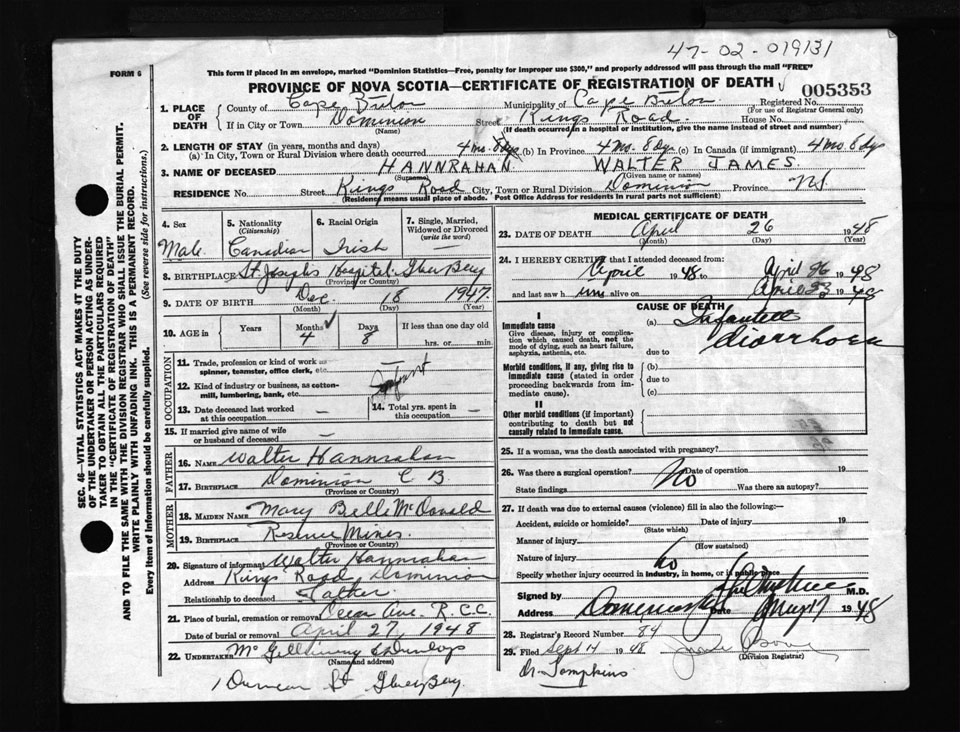 47-02-019131
FORM 6
This form if placed in an envelope, marked "Dominion Statistics—Free, penalty for improper use $300," and properly addressed will pass through the mail "FREE"
PROVINCE OF NOVA SCOTIA—CERTIFICATE OF REGISTRATION OF DEATH
005353
1. PLACE OF DEATH
County of Cape Breton Municipality of Cape Breton Registered No.
(For use of Registrar General only)
If in City or Town Dominion Street Kings Road House No.
(Name) (If death occurred in a hospital or institution, give the name instead of street and number)
2. LENGTH OF STAY (in years, months and days)
(a) In City, Town or Rural Division where death occurred 4 mo. 8 dys (b) In Province 4 Mo. 8 dys (c) In Canada (if immigrant) 4 mo 8 dys
3. NAME OF DECEASED HANNRAHAN WALTER JAMES.
(Surname) (Given name or names)
RESIDENCE No. Street Kings Road City, Town or Rural Division Dominion Province N.S.
(Residence means usual place of abode. Post Office Address for residents in rural parts not sufficient)
4. Sex Male
5. Nationality (Citizenship) Canadian
6. Racial Origin Irish
7. Single, Married, Widowed or Divorced (write the word) —
8. BIRTHPLACE St Joseph's Hospital, Glace Bay
(Province or Country)
9. DATE OF BIRTH Dec. 18 1947.
(Month) (Day) (Year)
10. AGE in Years Months 4 Days 8 If less than one day old
hrs. or min.
OCCUPATION
11. Trade, profession or kind of work as spinner, teamster, office clerk, etc. —
12. Kind of industry or business, as cotton-mill, lumbering, bank, etc. Infant
13. Date deceased last worked at this occupation —
14. Total yrs. spent in this occupation —
15. If married give name of wife or husband of deceased —
FATHER
16. NAME Walter Hannrahan
17. BIRTHPLACE Dominion C B.
(Province or Country)
MOTHER
18. MAIDEN NAME Mary Belle McDonald
19. BIRTHPLACE Reserve Mines.
(Province or Country)
20. Signature of informant Walter Hannrahan
Address Kings Road, Dominion
Relationship to deceased Father
21. Place of burial, cremation or removal Ocean Ave. R.C.C.
Date of burial or removal April 27, 1948
22. UNDERTAKER McGillivray & Dunlop
(Name and address)
1 Duncan St Glace Bay.
MEDICAL CERTIFICATE OF DEATH
23. DATE OF DEATH April 26 1948
(Month) (Day) (Year)
24. I HEREBY CERTIFY that I attended deceased from
April 1948 to April 26 1948
and last saw him alive on April 23 1948
CAUSE OF DEATH
I
Immediate cause (a) Infantile diarrhoea
Give disease, injury or complication which caused death, not the mode of dying, such as heart failure, asphyxia, asthenia, etc.
due to
Morbid conditions, if any, giving rise to immediate cause (stated in order proceeding backwards from immediate cause)
(b)
due to
(c)
II
Other morbid conditions (if important) contributing to death but not causally related to immediate cause.
25. If a woman, was the death associated with pregnancy?
26. Was there a surgical operation? No Date of operation 19
State findings Was there an autopsy?
27. If death was due to external causes (violence) fill in also the following:—
Accident, suicide or homicide? Date of injury 19
(State which)
Manner of injury
(How sustained)
Nature of injury No
Specify whether injury occurred in industry, in home, or in public place
Signed by M.D.
Address Date 17 1948
28. Registrar's Record Number 84
29. Filed Sept 14 1948
(Division Registrar)
Dr. Tompkins
SEC. 46—VITAL STATISTICS ACT MAKES IT THE DUTY
OF THE UNDERTAKER OR PERSON ACTING AS UNDER-
TAKER TO OBTAIN ALL THE PARTICULARS REQUIRED
IN THE "CERTIFICATE OF REGISTRATION OF DEATH"
AND TO FILE THE SAME WITH THE DIVISION REGISTRAR WHO SHALL ISSUE THE BURIAL PERMIT.
WRITE PLAINLY WITH UNFADING INK. THIS IS A PERMANENT RECORD.
Every item of information should be carefully supplied. (See reverse side for instructions.)